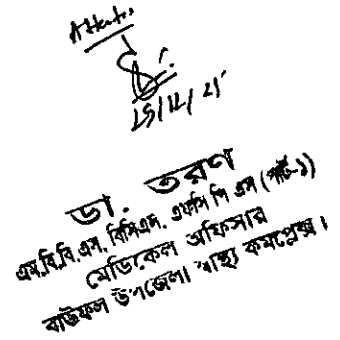 Attested
15/12/21
ডা. তরণ
এম.বি.বি.এস, বিসিএস, এফসি পি এস (পার্ট-১)
মেডিকেল অফিসার
বাউফল উপজেলা স্বাস্থ্য কমপ্লেক্স।